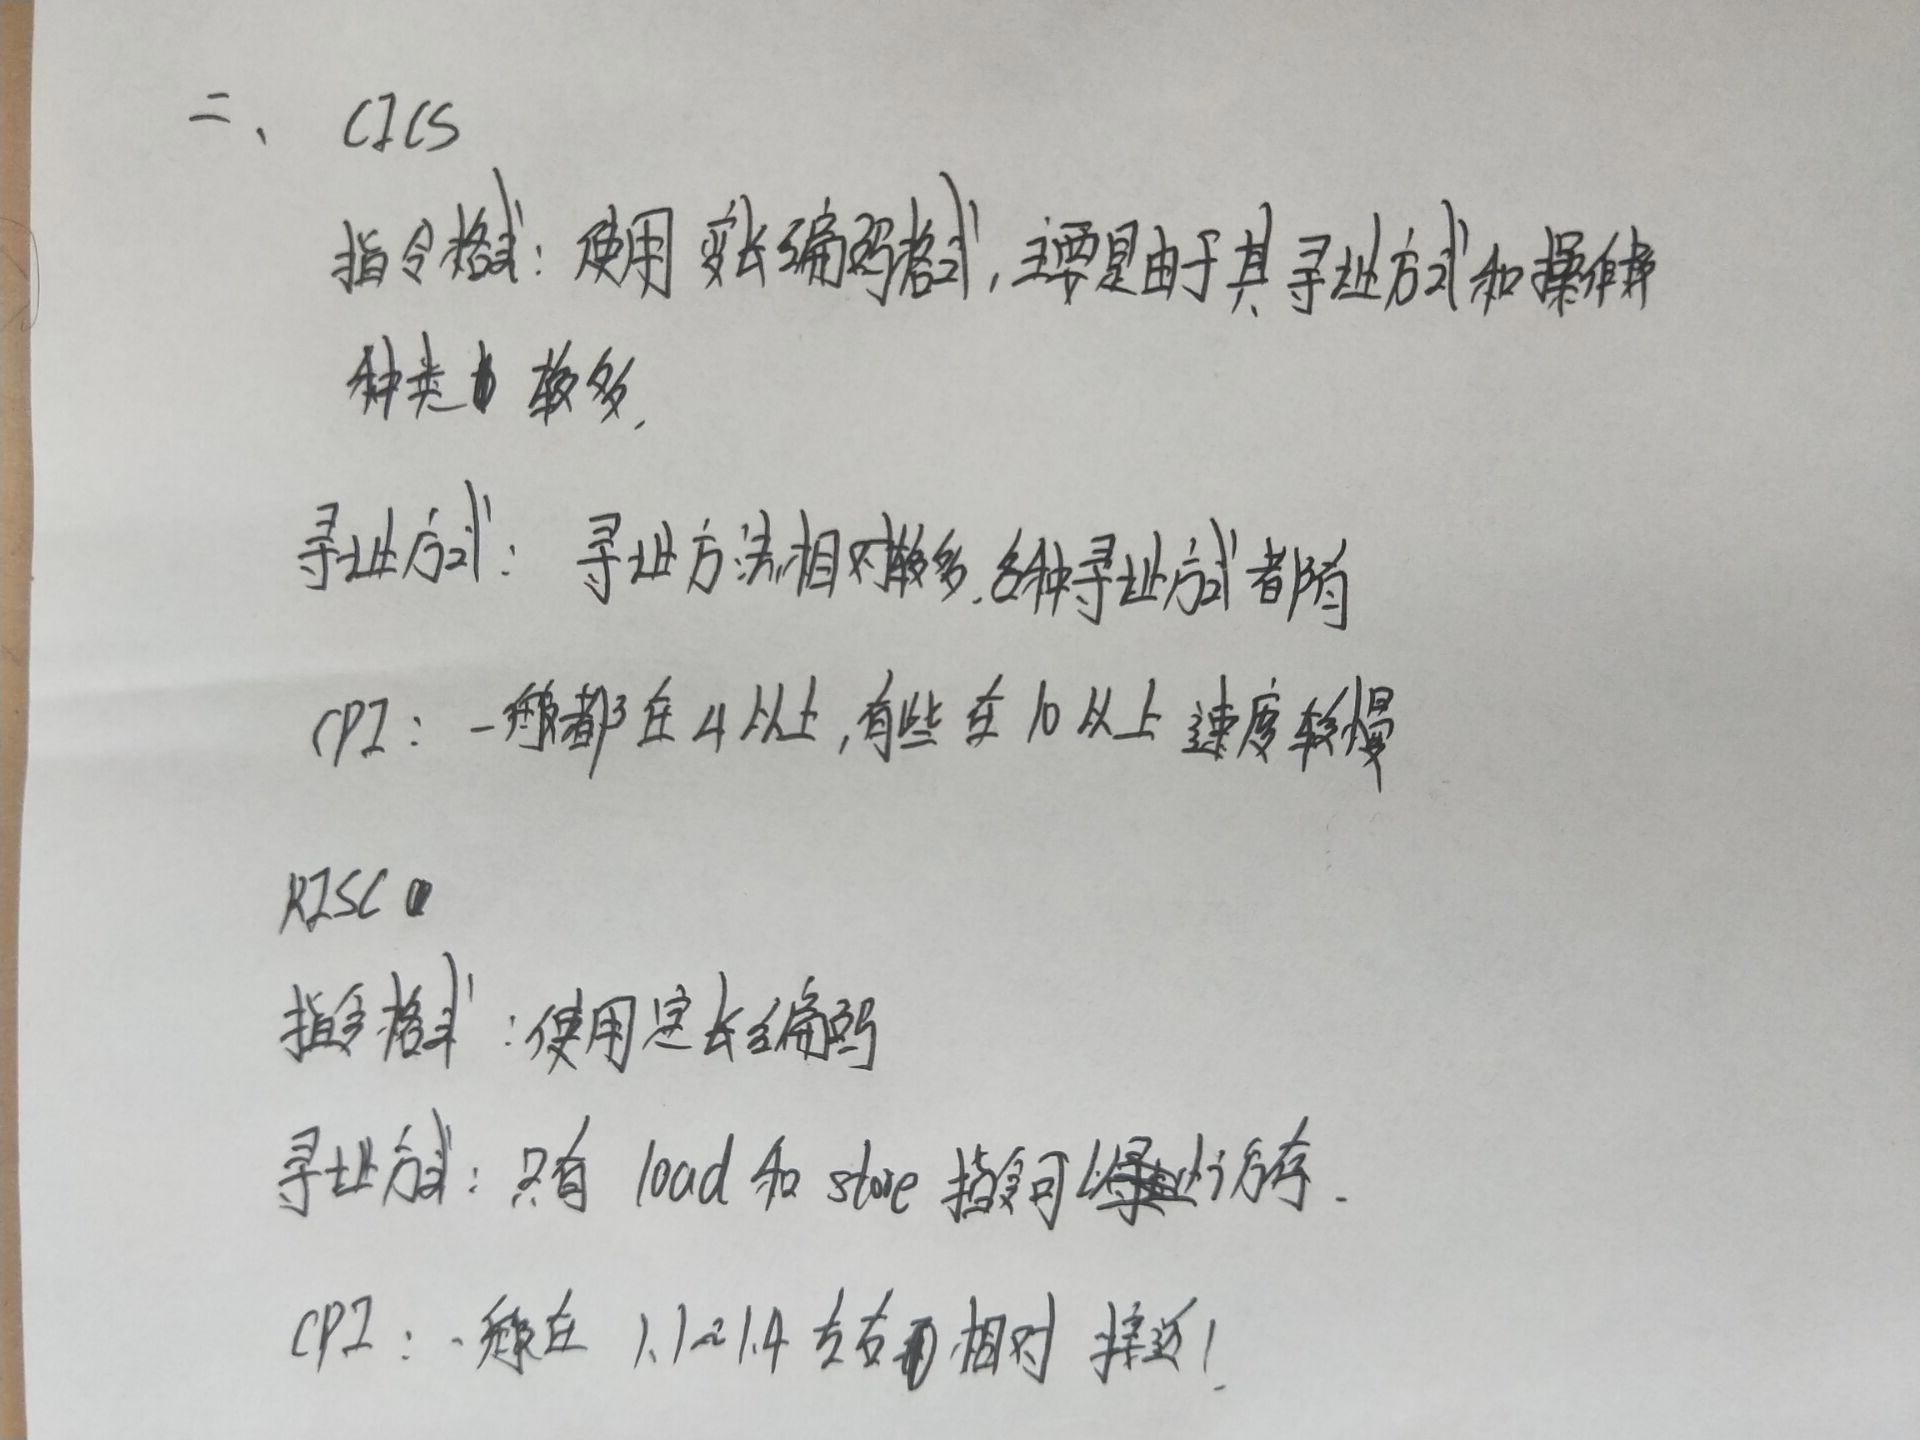 二、 CICS
指令格式：使用 变长编码格式，主要是由于其寻址方式和操作
种类 较多.
寻址方式： 寻址方法相对较多.各种寻址方式都有
CPI：一般都在4以上，有些在10以上 速度较慢
RISC
指令格式：使用定长编码
寻址方式：只有 load 和 store 指令可以访存.
CPI：一般在 1.1~1.4 左右 相对 接近1.